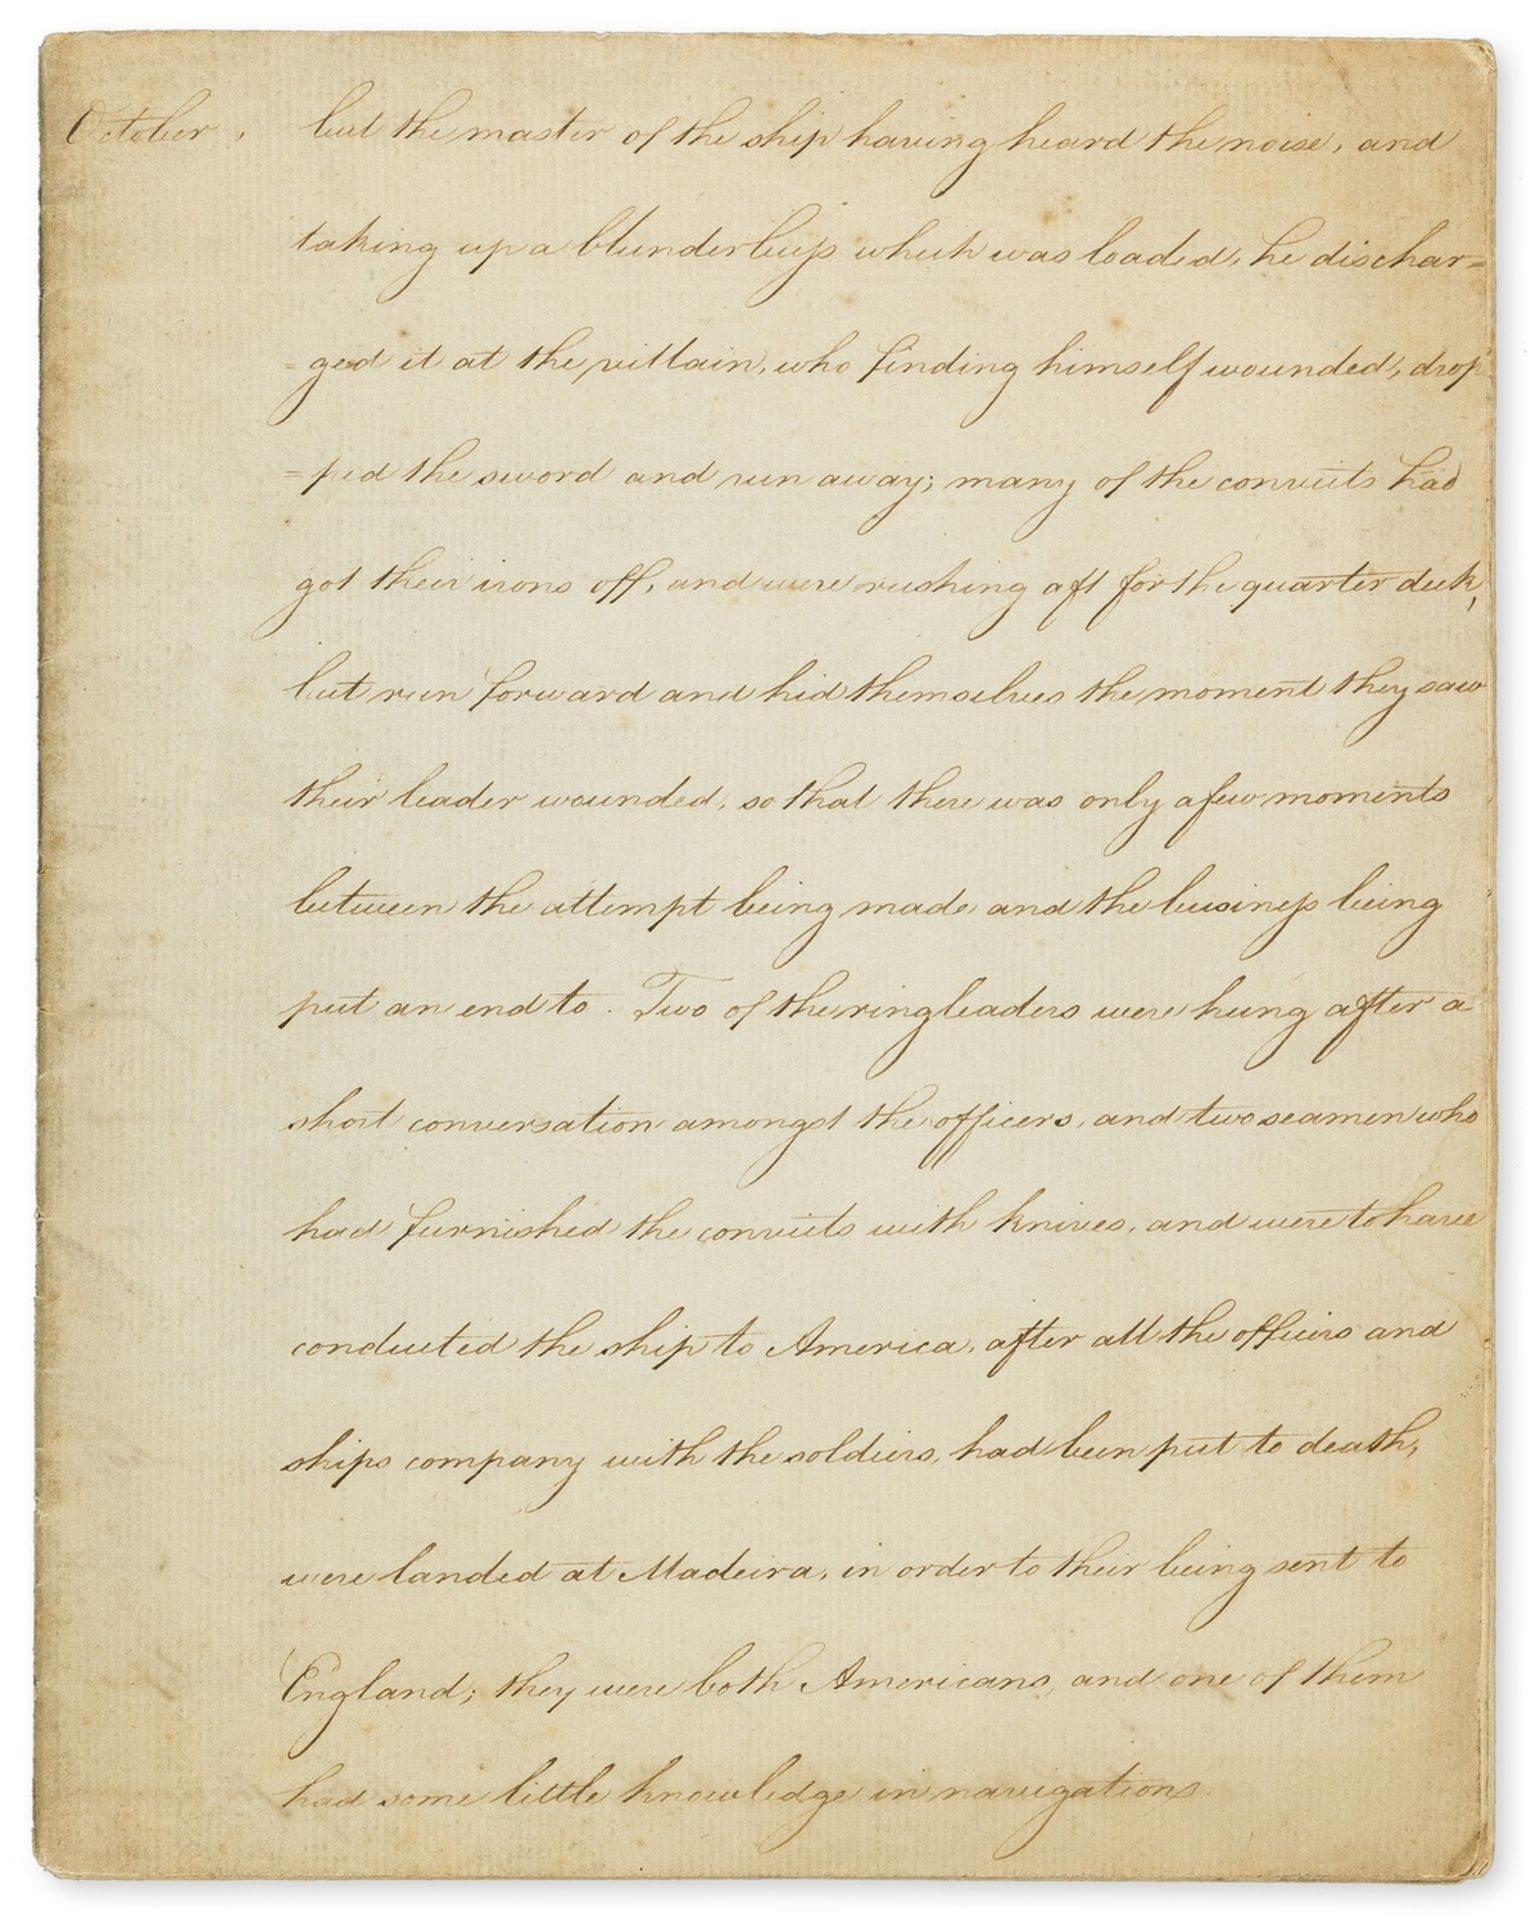 October. but the master of the ship having heard the noise, and
taking up a blunderbuſs which was loaded, he dischar=
=ged it at the villain, who finding himself wounded, drop
=ped the sword and run away; many of the convicts had
got their irons off, and were rushing aft for the quarter deck,
but run forward and hid themselves the moment they saw
their leader wounded, so that there was only a few moments
between the attempt being made and the busineſs being
put an end to. Two of the ringleaders were hung after a
short conversation amongst the officers, and two seamen who
had furnished the convicts with knives, and were to have
conducted the ship to America, after all the officers and
ships company with the soldiers, had been put to death,
were landed at Madeira, in order to their being sent to
England; they were both Americans, and one of them
had some little knowledge in navigations.